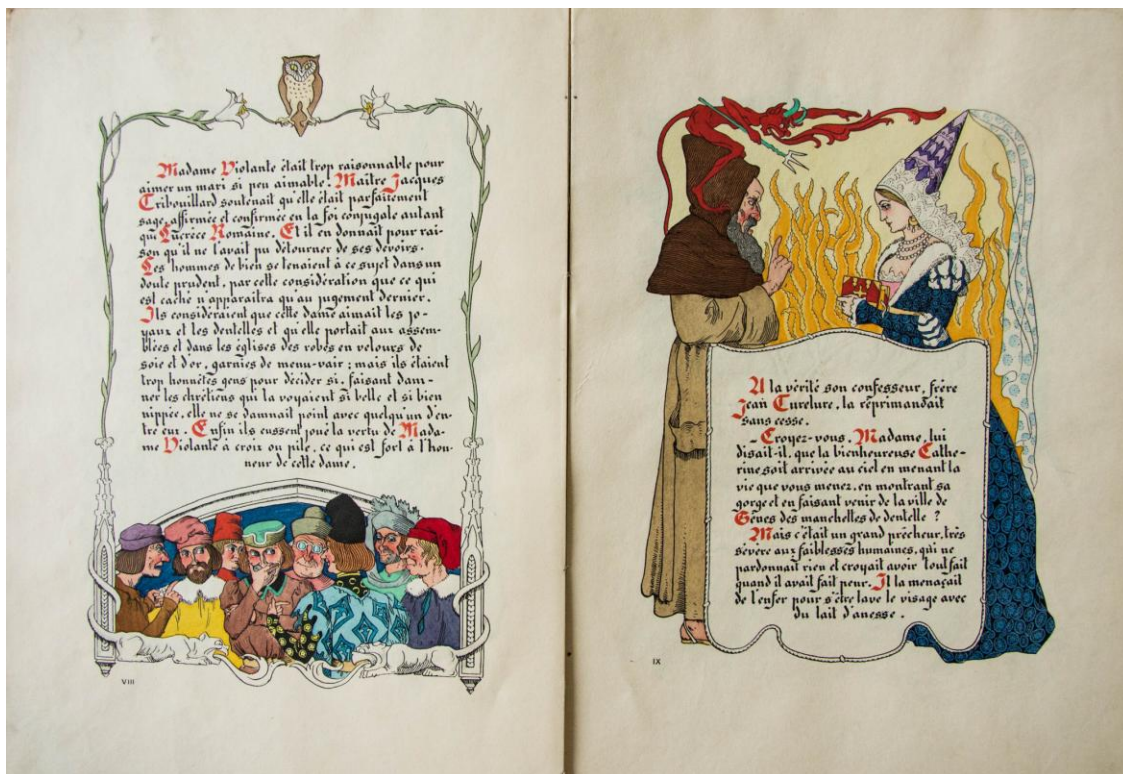 Madame Violante était trop raisonnable pour
aimer un mari si peu aimable. Maître Jacques
Tribouillard soutenait qu'elle était parfaitement
sage, affirmée et confirmée en la foi conjugale autant
que Lucrèce Romaine. Et il en donnait pour rai-
son qu'il ne l'avait pu détourner de ses devoirs.
Les hommes de bien se tenaient à ce sujet dans un
doute prudent, par cette considération que ce qui
est caché n'apparaîtra qu'au jugement dernier.
Ils considéraient que cette dame aimait les jo-
yaux et les dentelles et qu'elle portait aux assem-
blées et dans les églises des robes en velours de
soie et d'or, garnies de menu-vair ; mais ils étaient
trop honnêtes gens pour décider si, faisant dam-
ner les chrétiens qui la voyaient si belle et si bien
nippée, elle ne se damnait point avec quelqu'un d'en-
tre eux. Enfin ils eussent joué la vertu de Mada-
me Violante à croix ou pile, ce qui est fort à l'hon-
neur de cette dame.
VIII
A la vérité son confesseur, frère
Jean Turelure, la réprimandait
sans cesse.
- Croyez-vous, Madame, lui
disait-il, que la bienheureuse Cathe-
rine soit arrivée au ciel en menant la
vie que vous menez, en montrant sa
gorge et en faisant venir de la ville de
Gênes des manchettes de dentelle ?
Mais c'était un grand prêcheur, très
sévère aux faiblesses humaines, qui ne
pardonnait rien et croyait avoir tout fait
quand il avait fait peur. Il la menaçait
de l'enfer pour s'être lavé le visage avec
du lait d'ânesse.
IX